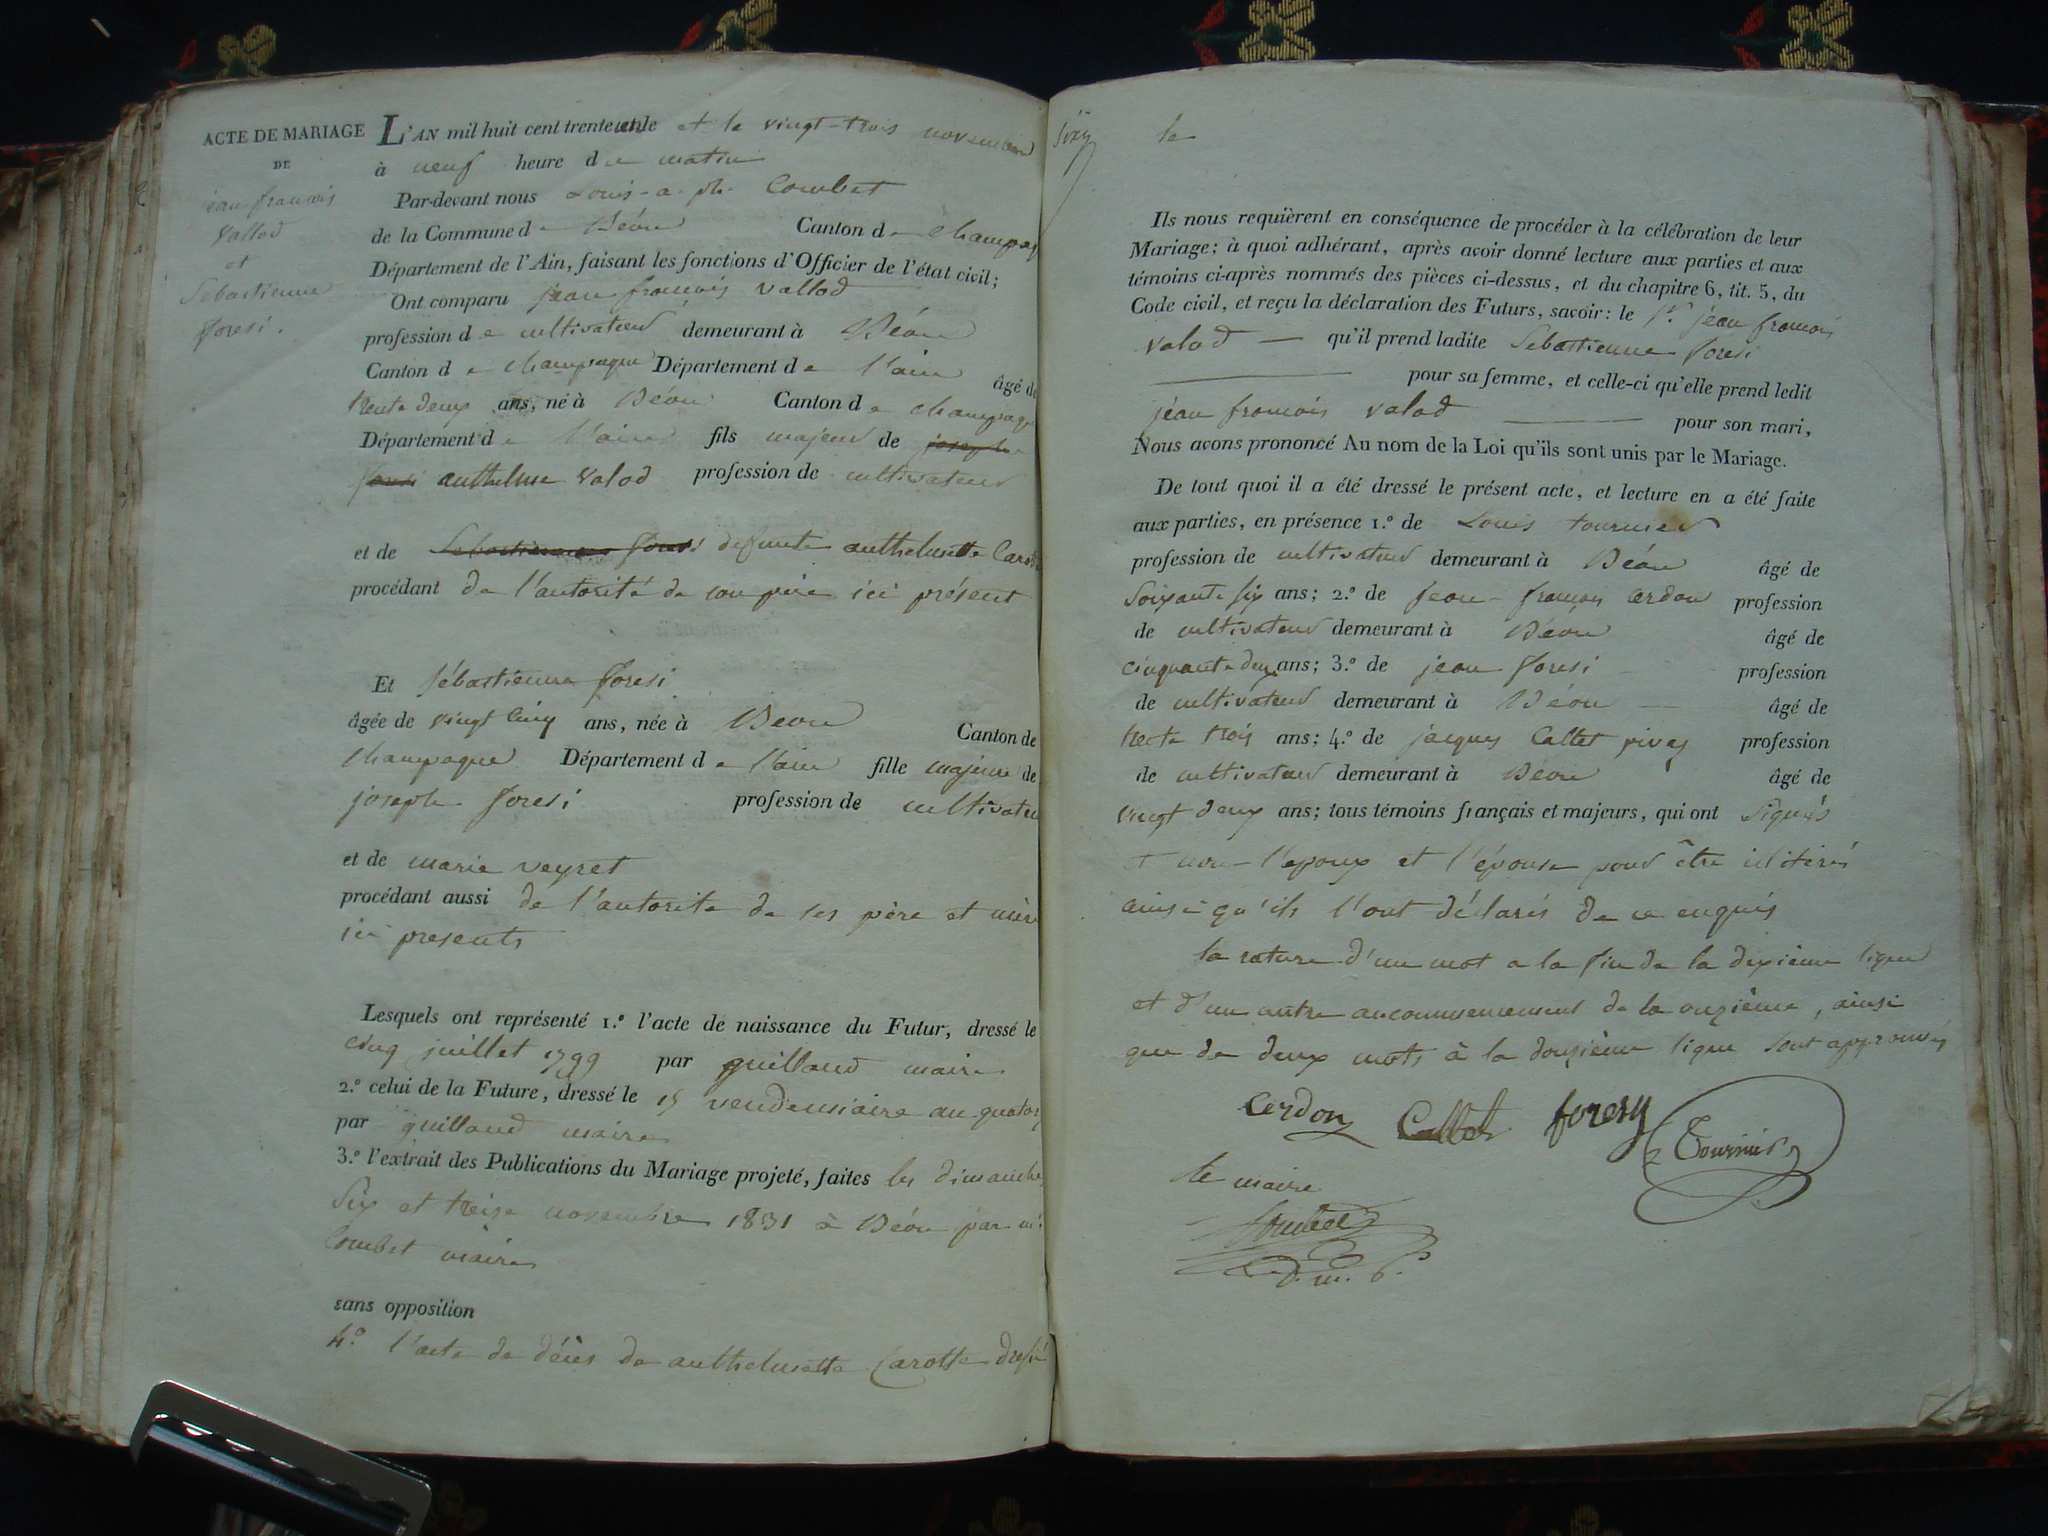 ACTE DE MARIAGE
DE
jean francois
vallod
et
Sébastienne
foresi.
L'AN mil huit cent trente et le vingt-trois novembre
à neuf heure de matin
Par-devant nous Louis-a-ph. Combet
de la Commune de Béon Canton de champag
Département de l'Ain, faisant les fonctions d'Officier de l'état civil;
Ont comparu jean francois vallod
profession de cultivateur demeurant à Béon
Canton de champagne Département de l'ain âgé de
trente deux ans, né à Béon Canton de champagn
Département de l'ain fils majeur de joseph
foresi anthelme valod profession de cultivateur
et de Sebastienne foresi defunte anthelmette Carotte
procédant de l'autorité de son père ici présent
Et Sébastienne foresi
âgée de vingt cinq ans, née à Béon Canton de
champagne Département de l'ain fille majeure de
joseph foresi profession de cultivateu
et de marie veyret
procédant aussi de l'autorité de ses père et mère
ici presents
Lesquels ont représenté 1.º l'acte de naissance du Futur, dressé le
cinq juillet 1799 par guilland maire
2.º celui de la Future, dressé le 15 vendemiaire an quatorz
par guilland maire
3.º l'extrait des Publications du Mariage projeté, faites les dimanches
Six et treise novembre 1831 à Béon par
Combet maire
sans opposition
4.º l'acte de décès de anthelmette Carotte dressé
le
Ils nous requièrent en conséquence de procéder à la célébration de leur
Mariage; à quoi adhérant, après avoir donné lecture aux parties et aux
témoins ci-après nommés des pièces ci-dessus, et du chapitre 6, tit. 5, du
Code civil, et reçu la déclaration des Futurs, savoir: le Sr. jean francois
valod — qu'il prend ladite Sebastienne foresi
— pour sa femme, et celle-ci qu'elle prend ledit
jean francois valod — pour son mari,
Nous avons prononcé Au nom de la Loi qu'ils sont unis par le Mariage.
De tout quoi il a été dressé le présent acte, et lecture en a été faite
aux parties, en présence 1.º de Louis tournier
profession de cultivateur demeurant à Béon âgé de
soixante six ans; 2.º de jean-francois Cerdon profession
de cultivateur demeurant à Béon âgé de
cinquante deux ans; 3.º de jean foresi profession
de cultivateur demeurant à Béon — âgé de
trente trois ans; 4.º de jacques Callet profession
de cultivateur demeurant à Béon âgé de
vingt deux ans; tous témoins français et majeurs, qui ont signés
et non l'epoux et l'épouse pour être illitérés
ainsi qu'ils l'ont déclarés de ce enquis
la rature d'un mot a la fin de la dixième ligne
et d'un autre au commencement de la onzième, ainsi
que de deux mots à la douzième ligne sont approuvés
Cerdon Callet foresy Tournier
le maire
Combet
d. m. p.